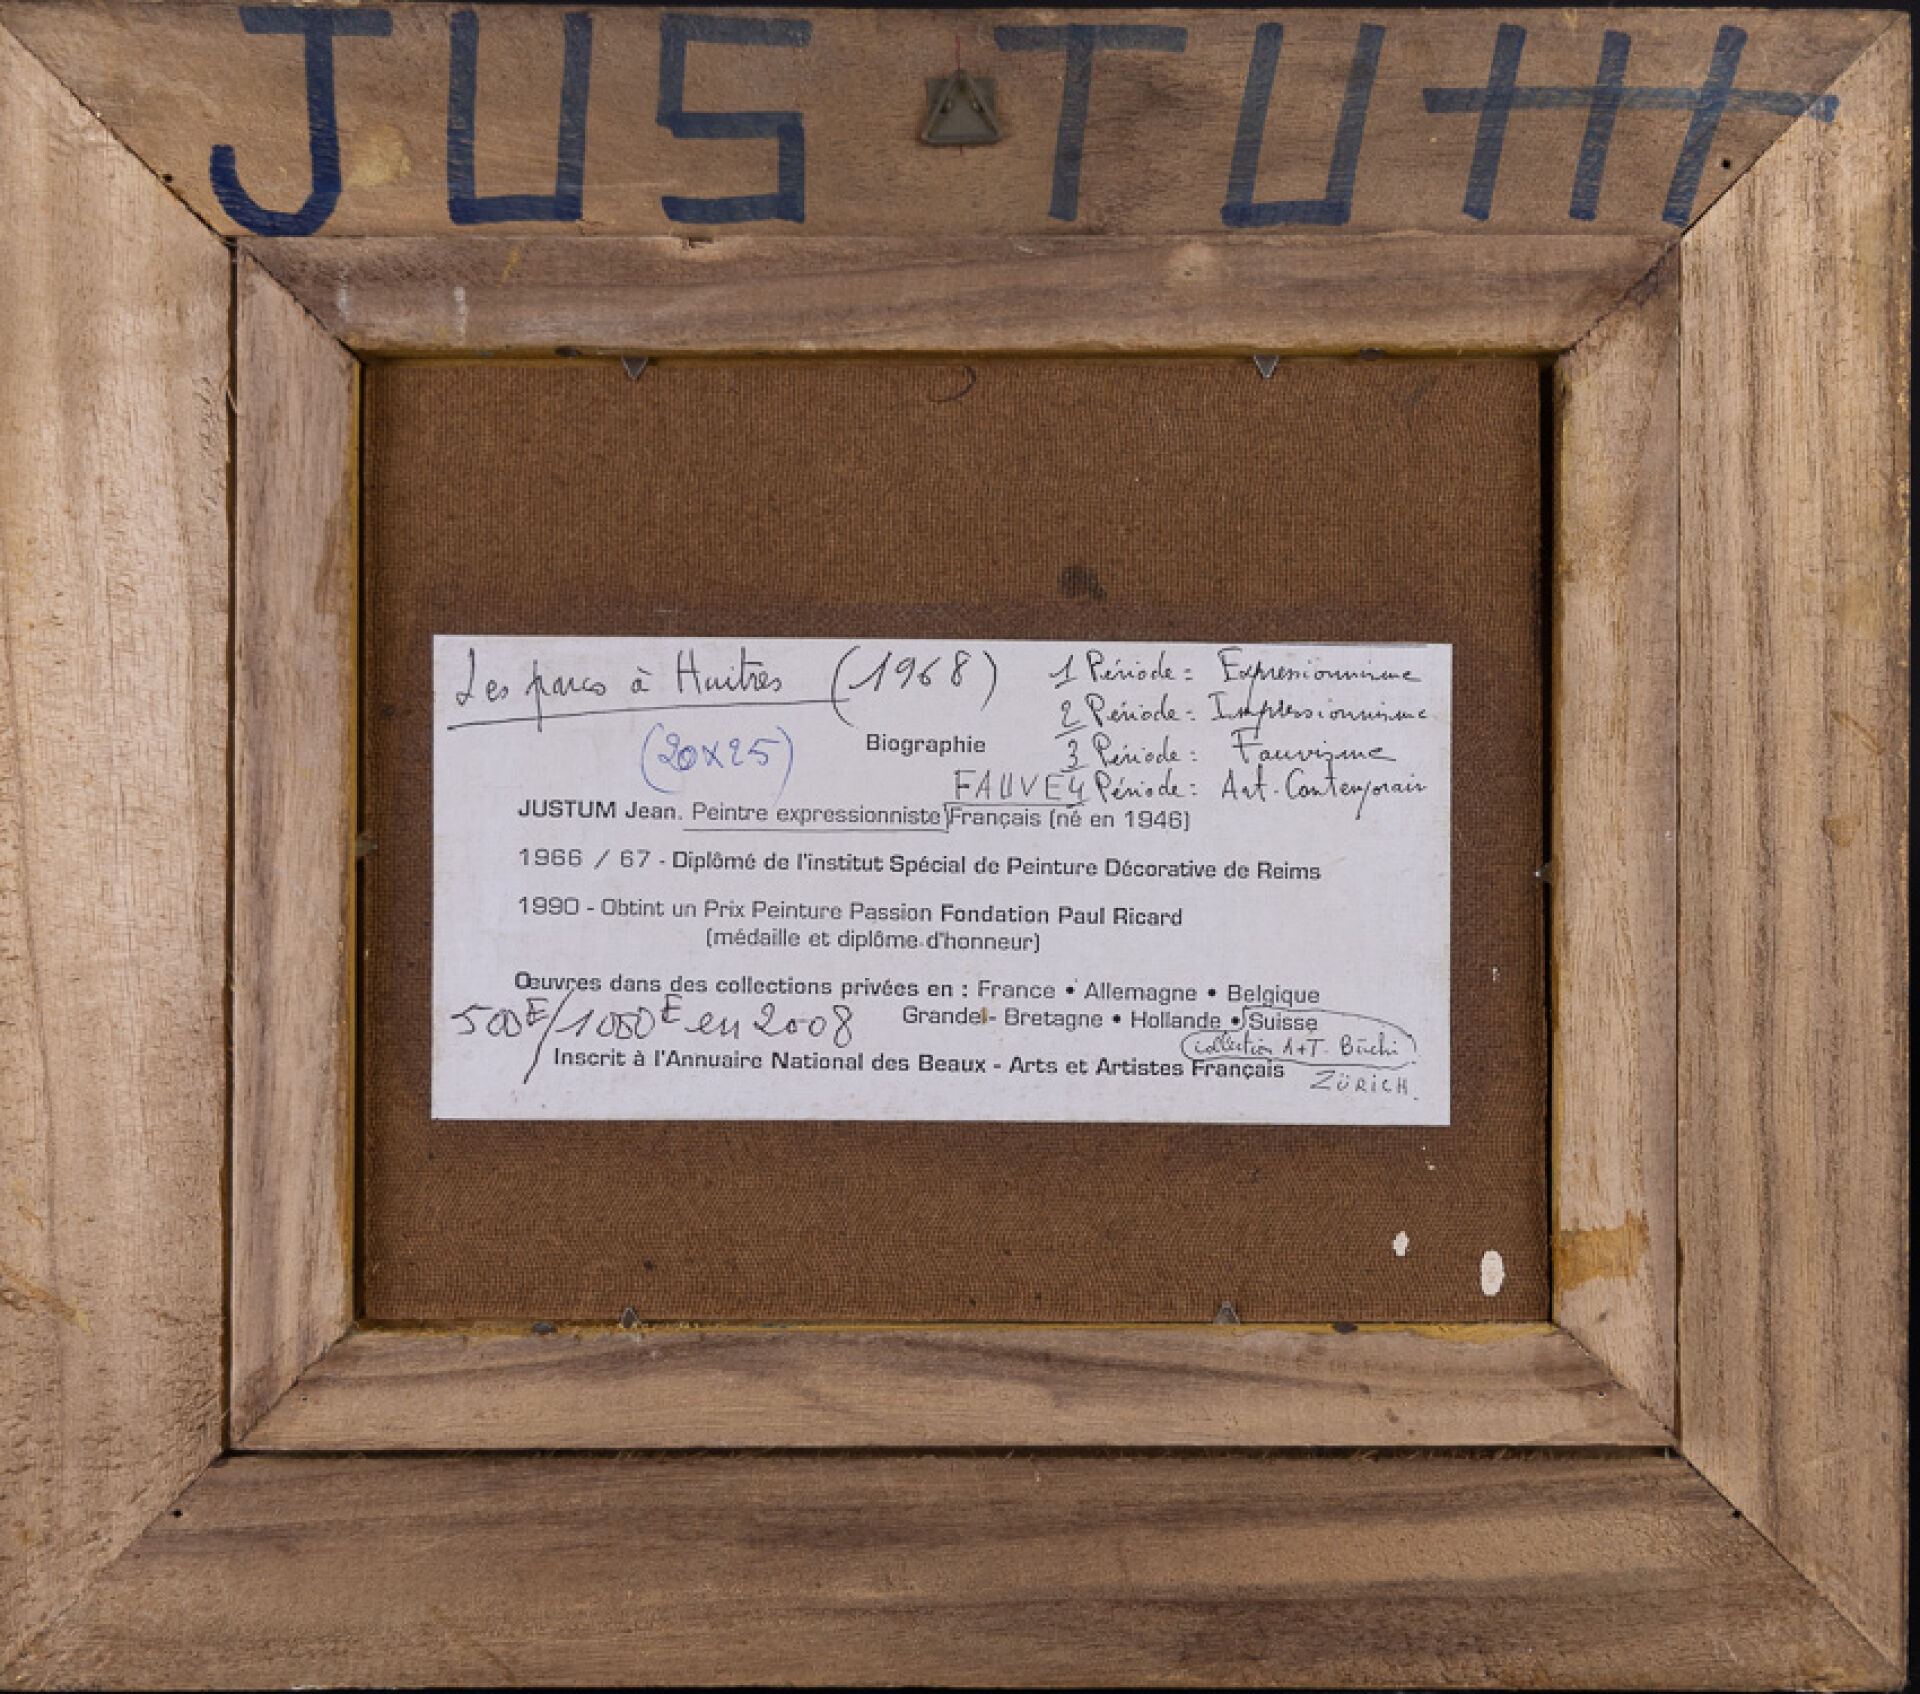 JUSTUM
Les parcs à Huitres (1968)
1 Période = Expressionnisme
2 Période : Impressionnisme
(20x25)
Biographie
3 Période : Fauvisme
FAUVE
4 Période : Art-Contemporain
JUSTUM Jean. Peintre expressionniste Français (né en 1946)
1966 / 67 - Diplômé de l'institut Spécial de Peinture Décorative de Reims
1990 - Obtint un Prix Peinture Passion Fondation Paul Ricard
(médaille et diplôme d'honneur)
Œuvres dans des collections privées en : France • Allemagne • Belgique
500E/1000E en 2008
Grande - Bretagne • Hollande • Suisse
collection
Inscrit à l'Annuaire National des Beaux - Arts et Artistes Français
ZÜRICH.